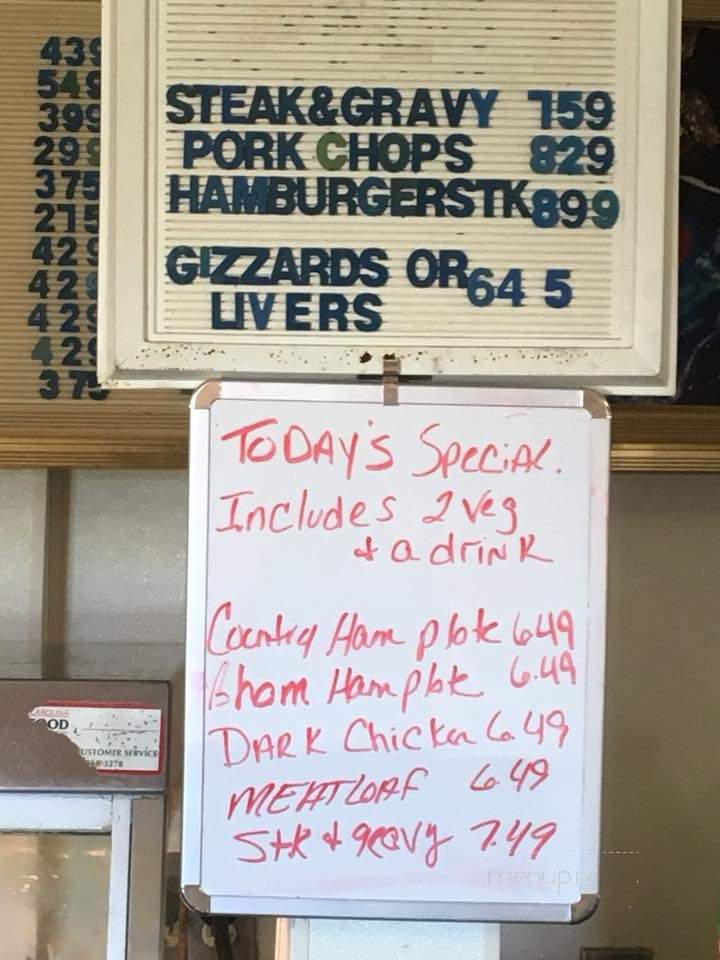 439
549
399
299
375
215
429
429
429
429
375
STEAK&GRAVY 759
PORK CHOPS 829
HAMBURGERSTK899
GIZZARDS OR 645
LIVERS
TODAY'S Special.
Includes 2 veg
& a drink
Country Ham plate 6.49
Bham Ham plate 6.49
DARK Chicken 6.49
MEATLOAF 6.49
Stk & gravy 7.49
CAROLINA
OOD
USTOMER SERVICE
3278
menupix